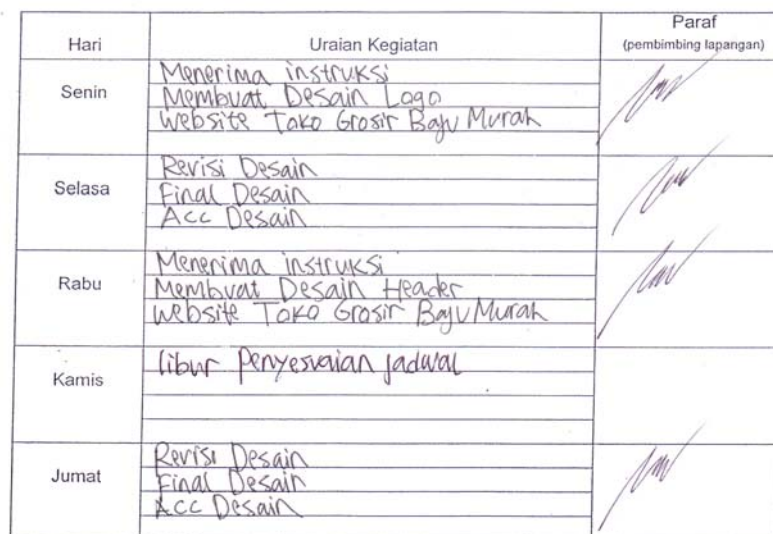 Hari Uraian Kegiatan Paraf
(pembimbing lapangan)
Senin
Menerima instruksi
Membuat Desain Logo
Website Toko Grosir Baju Murah
Selasa
Revisi Desain
Final Desain
Acc Desain
Rabu
Menerima instruksi
Membuat Desain Header
Website Toko Grosir Baju Murah
Kamis
libur Penyesuaian jadwal
Jumat
Revisi Desain
Final Desain
Acc Desain